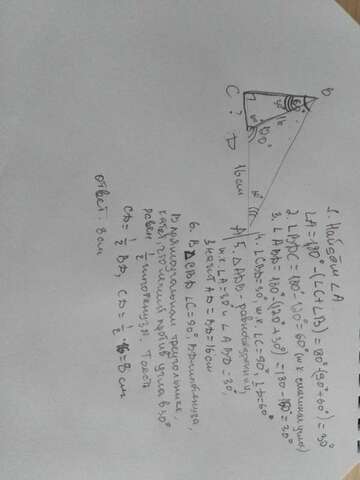 B
60°
16
C
?
D
120°
16 см
A
1. Найдём ∠A
∠A = 180° - (∠C + ∠B) = 180° - (90° + 60°) = 30°
2. ∠BDC = 180 - 120° = 60° (т.к. смежные углы)
3. ∠ABD = 180° - (120° + 30°) = 180 - 150° = 30°
4. ∠CBD = 30°, т.к. ∠C = 90°, ∠D = 60°
5. △ABD - равнобедренный,
т.к. ∠A = 30° и ∠ABD = 30°,
значит AD = BD = 16 см
6. В △CBD ∠C = 90°, BD гипотенуза,
В прямоугольном треугольнике,
катет, лежащий против угла в 30°
равен 1/2 гипотенузы. То есть
CD = 1/2 BD, CD = 1/2 · 16 = 8 см
Ответ: 8 см